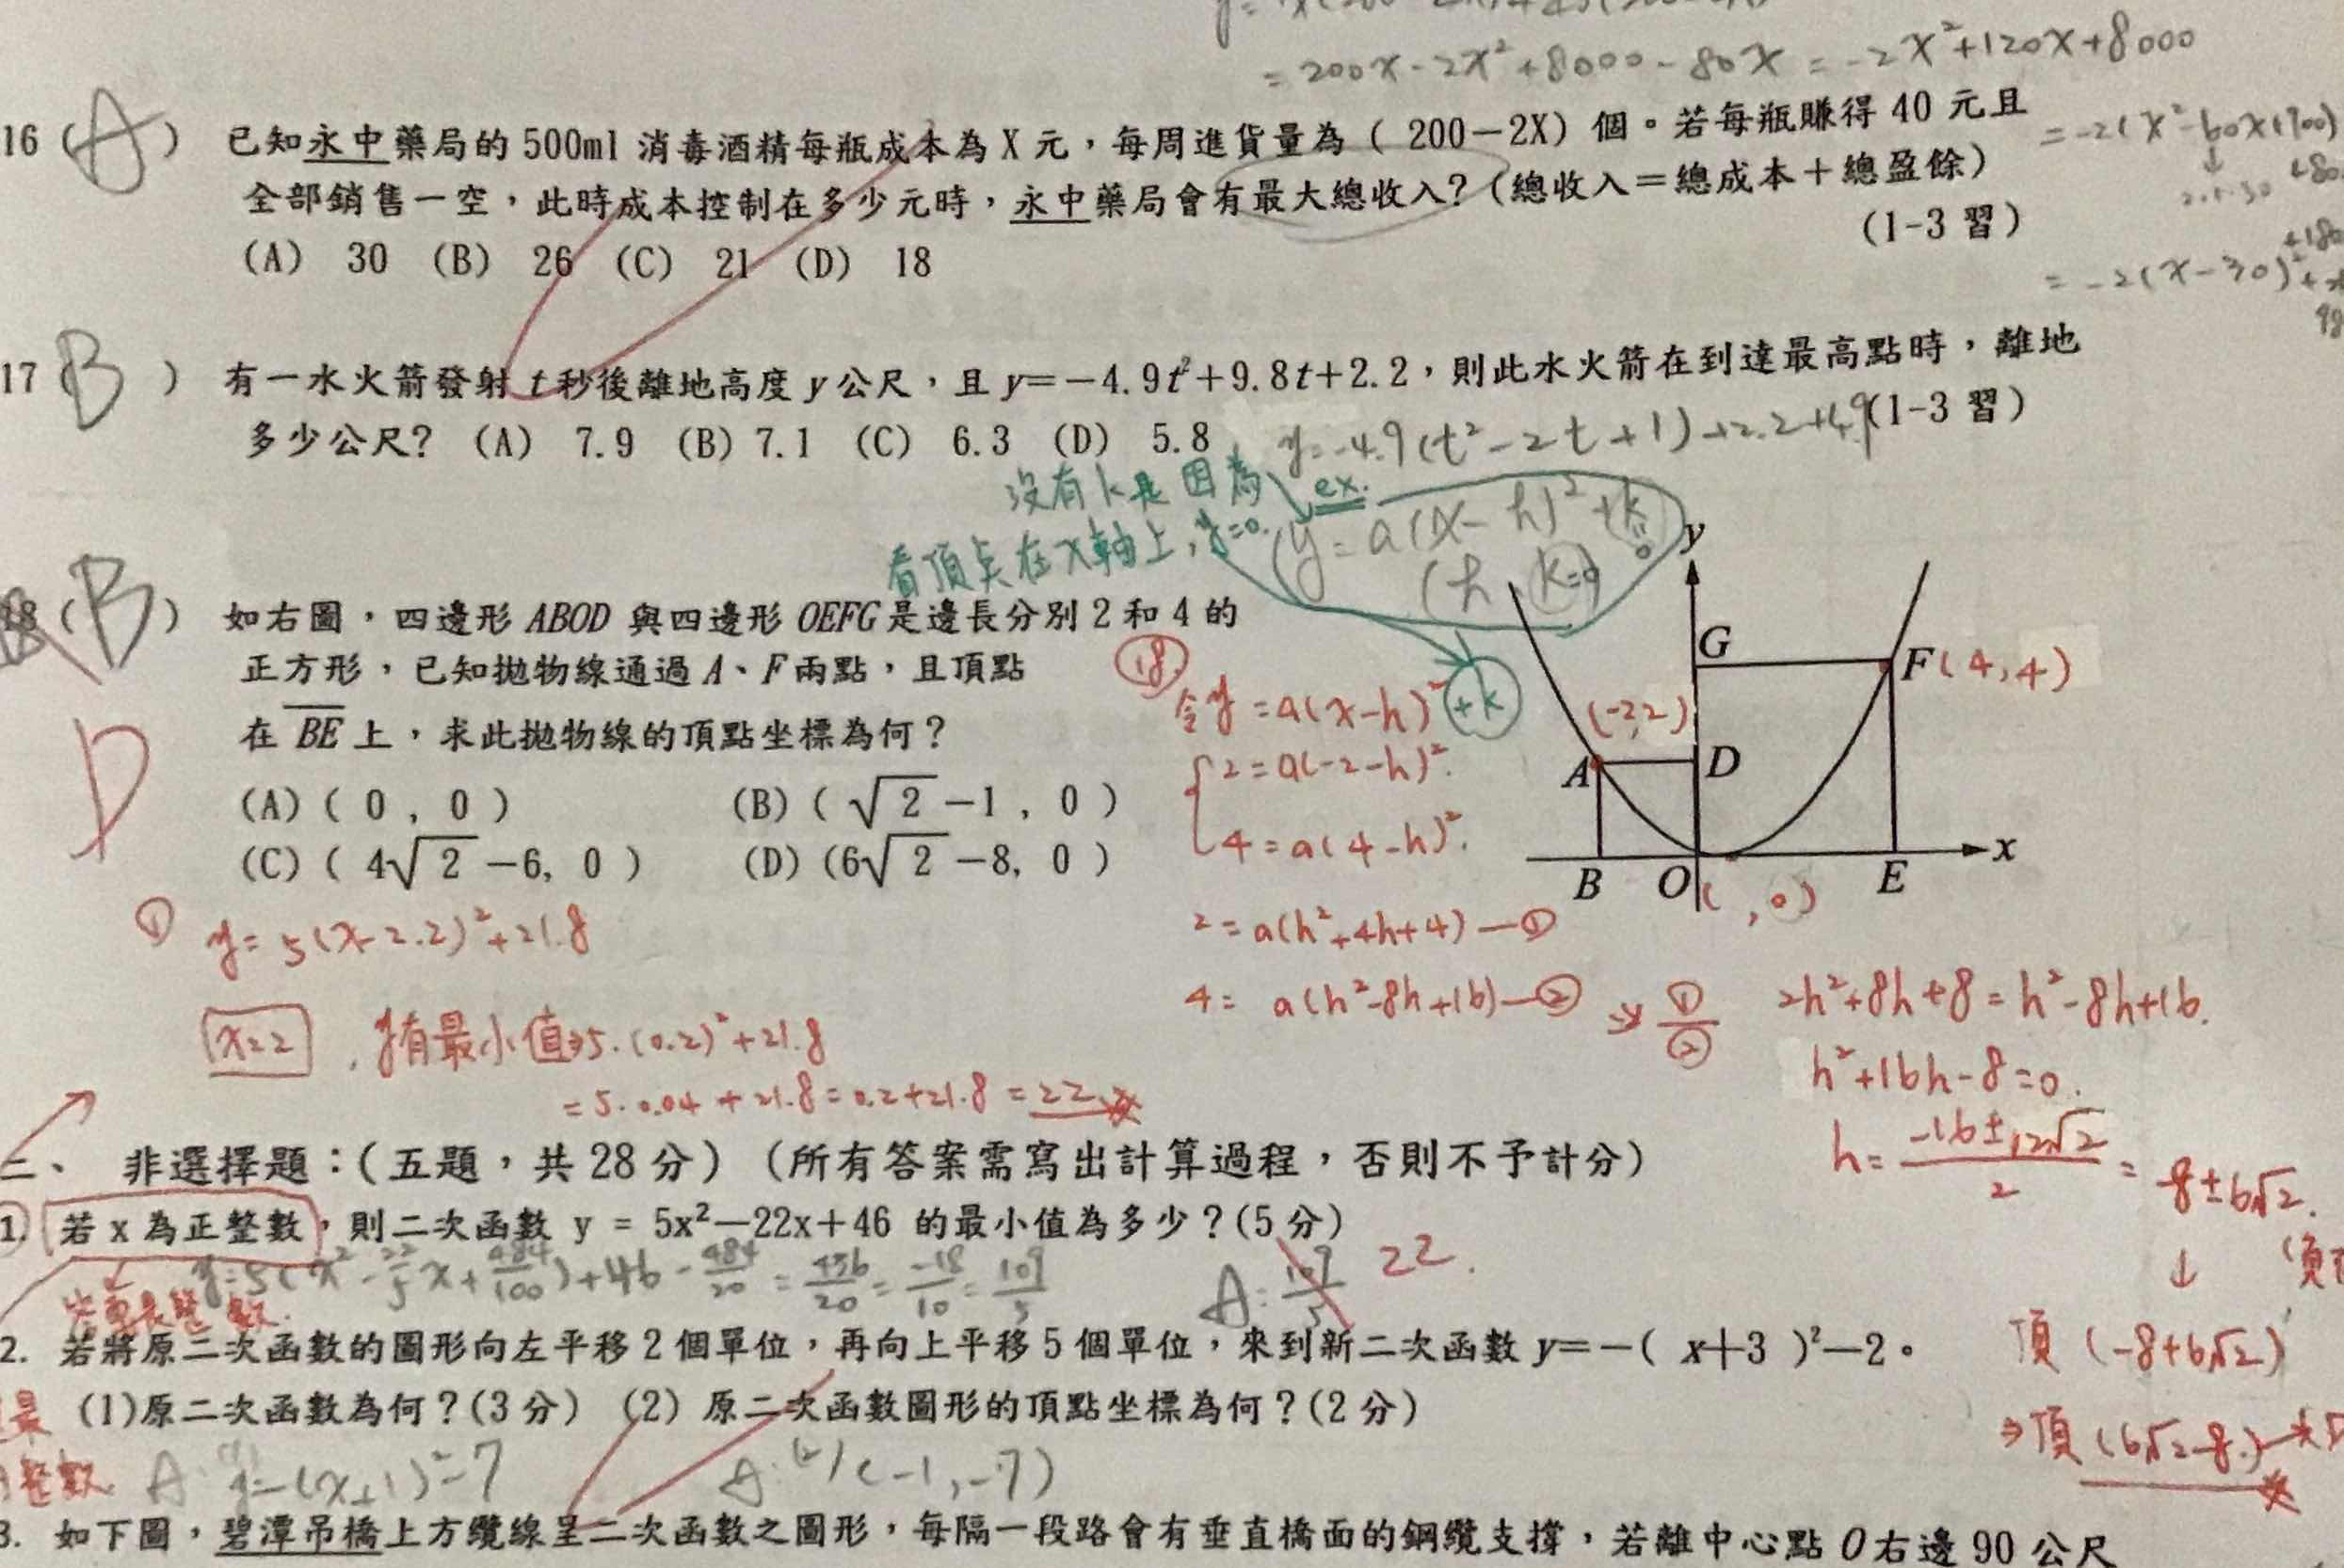 = 200x - 2x² + 8000 - 80x = -2x² + 120x + 8000
16 (A) 已知永中藥局的 500ml 消毒酒精每瓶成本為 X 元，每周進貨量為 ( 200－2X) 個。若每瓶賺得 40 元且
全部銷售一空，此時成本控制在多少元時，永中藥局會有最大總收入? (總收入＝總成本＋總盈餘)
(1-3 習)
(A) 30 (B) 26 (C) 21 (D) 18
17 (B) 有一水火箭發射 t 秒後離地高度 y 公尺，且 y=－4.9t²+9.8t+2.2，則此水火箭在到達最高點時，離地
多少公尺? (A) 7.9 (B) 7.1 (C) 6.3 (D) 5.8
(1-3 習)
y=-4.9(t²-2t+1)+2.2+4.9
沒有k是因為
看頂点在x軸上, y=0.
ex.
y=a(x-h)²+k
(h, k=0)
18 (B) 如右圖，四邊形 ABOD 與四邊形 OEFG 是邊長分別 2 和 4 的
正方形，已知拋物線通過 A、F 兩點，且頂點
在 BE 上，求此拋物線的頂點坐標為何？
(A) ( 0 , 0 ) (B) ( √2－1 , 0 )
(C) ( 4√2－6, 0 ) (D) (6√2－8, 0 )
D
y
G
F(4,4)
(-2,2)
A
D
x
B
O
E
( ,0)
18.
令y=a(x-h)²+k
2=a(-2-h)².
4=a(4-h)².
2=a(h²+4h+4)—①
4= a(h²-8h+16)—②
⇒ ①/②
2h²+8h+8=h²-8h+16.
h²+16h-8=0.
h= (-16±12√2)/2 = -8±6√2.
↓
頂 (-8+6√2)
⇒頂 (6√2-8.)
① y=5(x-2.2)²+21.8
x=2 , y有最小值⇒5.(0.2)²+21.8
=5.0.04+21.8=0.2+21.8=22
二、 非選擇題：(五題，共 28 分) (所有答案需寫出計算過程，否則不予計分)
1. 若 x 為正整數，則二次函數 y = 5x²－22x＋46 的最小值為多少？(5 分)
y=5(x²-22/5x+484/100)+46-484/20=436/20=-18/10=109/5
A: 109/5 22.
2. 若將原二次函數的圖形向左平移 2 個單位，再向上平移 5 個單位，來到新二次函數 y=－( x＋3 )²－2。
(1)原二次函數為何？(3 分) (2) 原二次函數圖形的頂點坐標為何？(2 分)
A: (1) y=-(x+1)²-7 A: (2) (-1,-7)
3. 如下圖，碧潭吊橋上方纜線呈二次函數之圖形，每隔一段路會有垂直橋面的鋼纜支撐，若離中心點 O 右邊 90 公尺